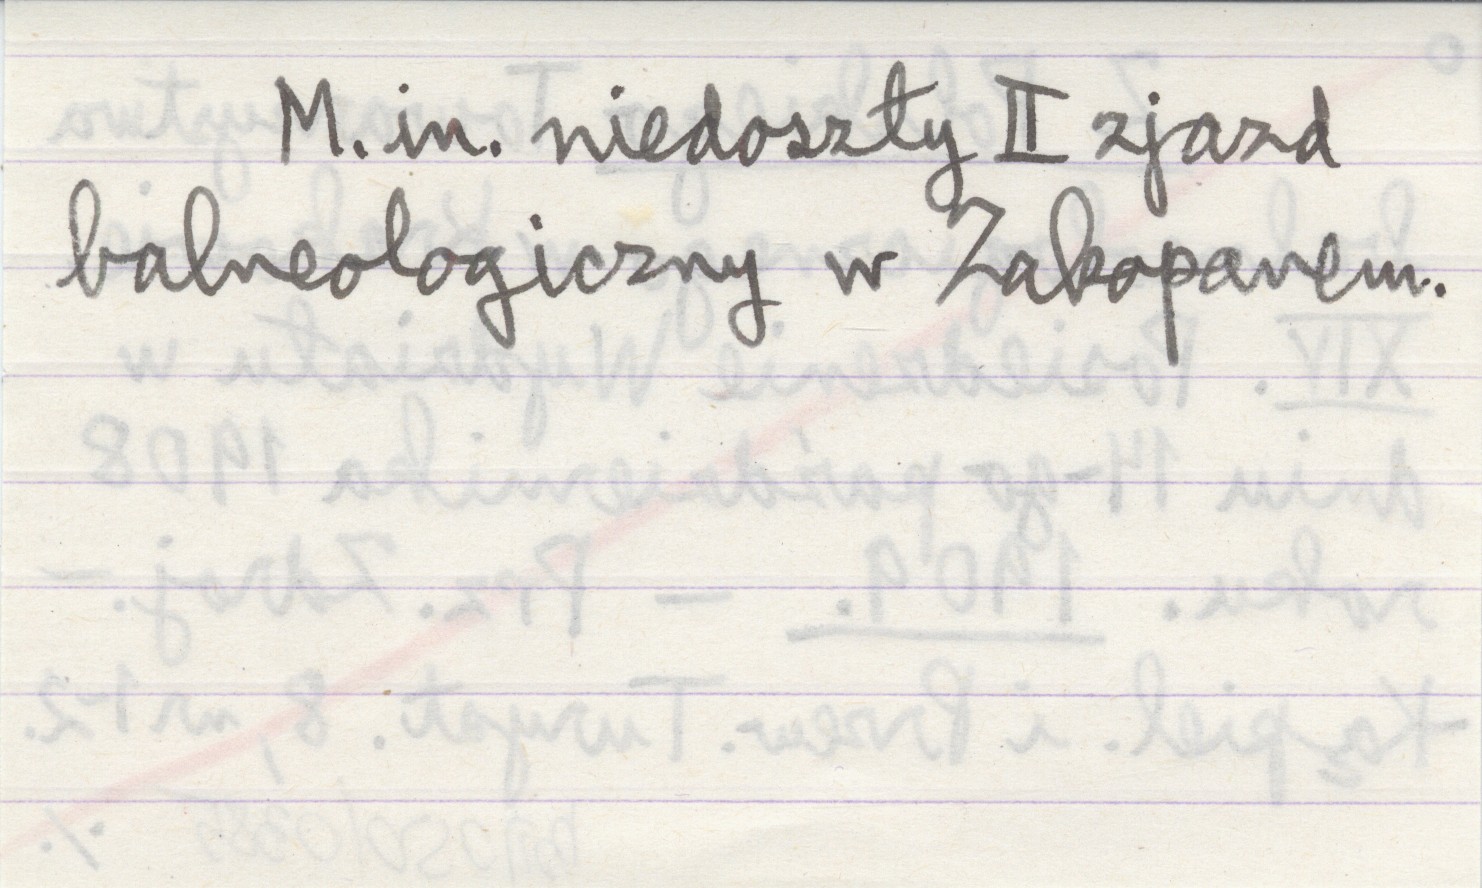 M. in. niedoszły II zjazd
balneologiczny w Zakopanem.